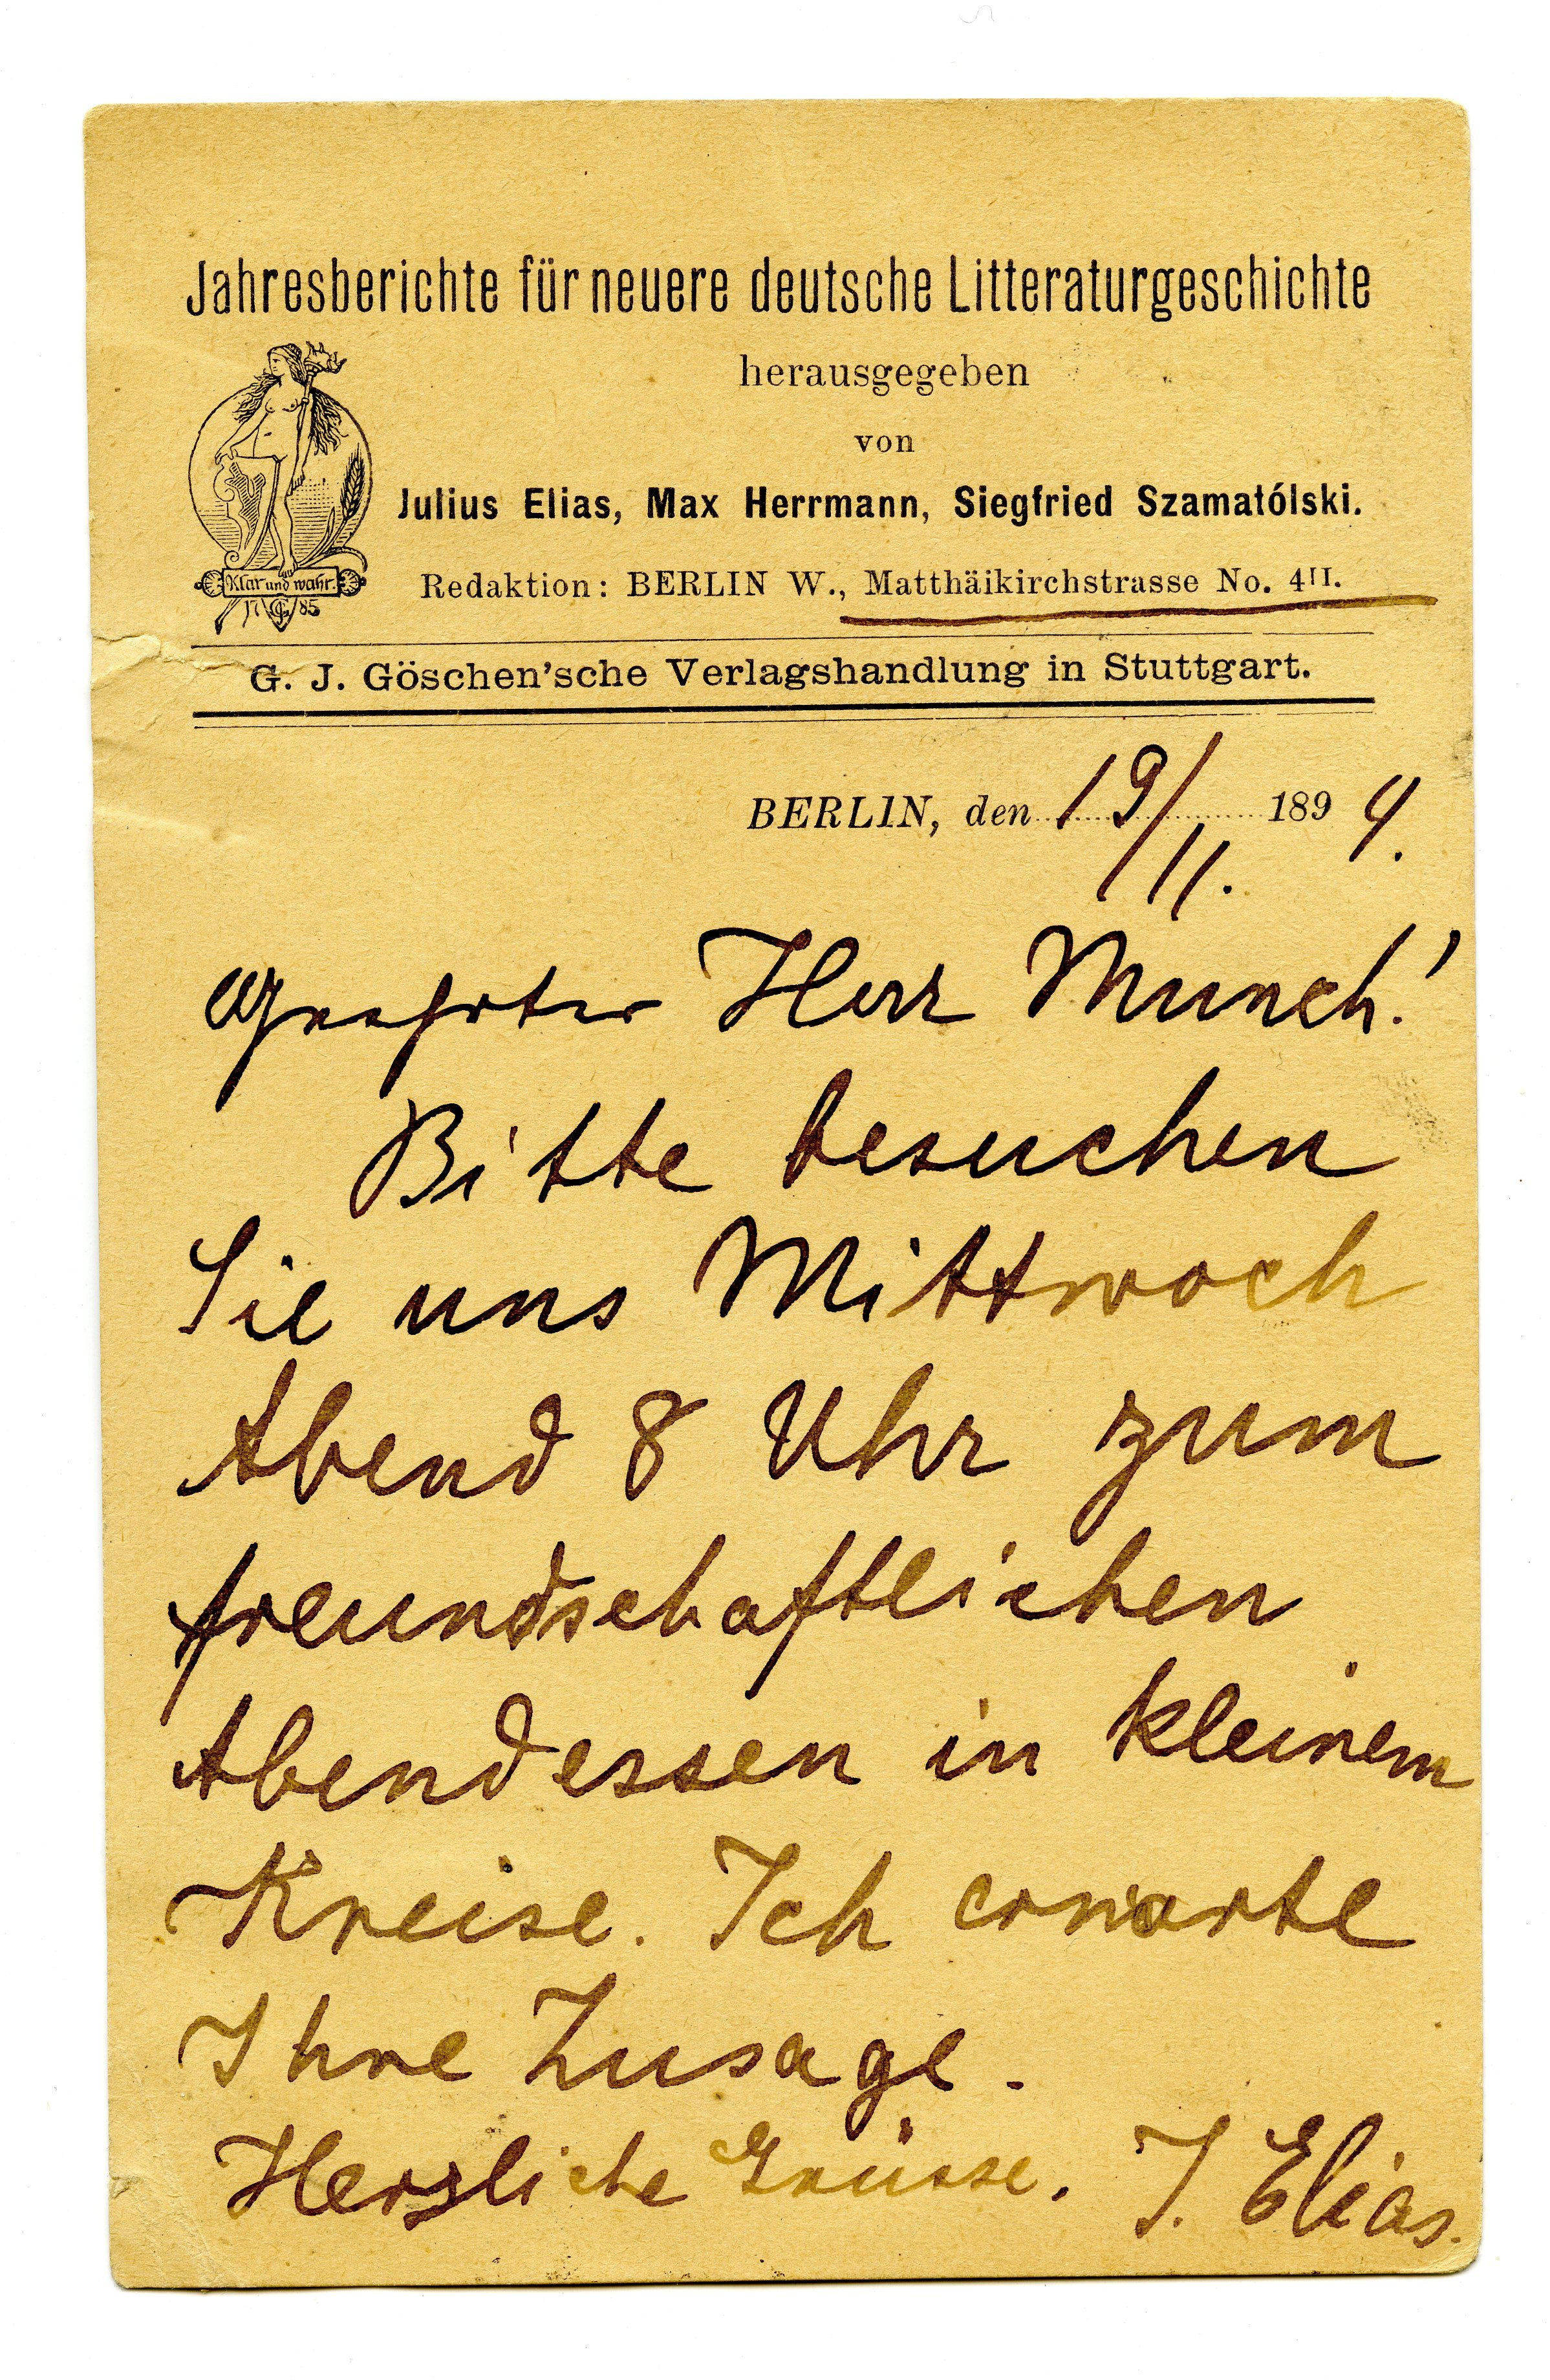 Jahresberichte für neuere deutsche Litteraturgeschichte
herausgegeben
von
Julius Elias, Max Herrmann, Siegfried Szamatólski.
Klar und wahr.
17 G 85
Redaktion: BERLIN W., Matthäikirchstrasse No. 4II.
G. J. Göschen'sche Verlagshandlung in Stuttgart.
BERLIN, den 19/11. 1894.
Geehrter Herr Munch!
Bitte besuchen
Sie uns Mittwoch
Abend 8 Uhr zum
freundschaftlichen
Abendessen in kleinem
Kreise. Ich erwarte
Ihre Zusage.
Herzliche Grüsse. J. Elias.